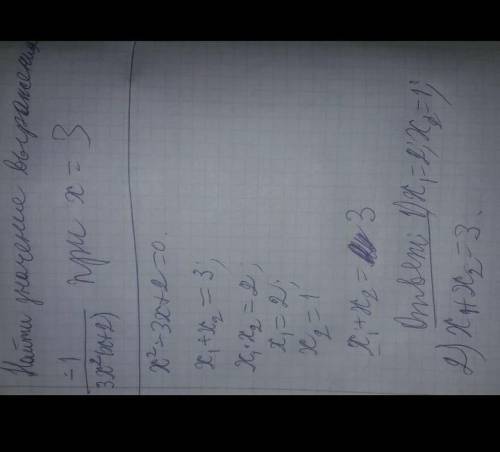 Найти значение выражения
-1
3x²(x+2) при x = 3
x²-3x+2=0.
x₁+x₂=3;
x₁·x₂=2;
x₁=2;
x₂=1
x₁+x₂= 3
Ответ: 1) x₁=2; x₂=1;
2) x₁+x₂=3.